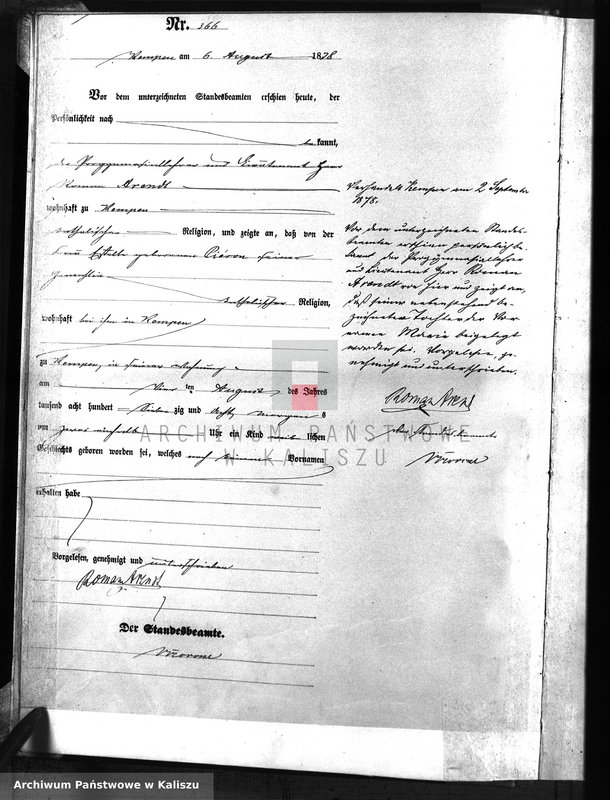 Nr. 366
Kempen am 6. August 1878
Vor dem unterzeichneten Standesbeamten erschien heute, der
Persönlichkeit nach
bekannt,
der Progymnasiallehrer und Lieutenant Herr
Roman Arendt
wohnhaft zu Kempen
katholischer Religion, und zeigte an, daß von der
Frau geborenen seiner
Ehefrau
katholischer Religion,
wohnhaft bei ihm in Kempen
zu Kempen, in seiner Wohnung
am Vier ten August des Jahres
tausend acht hundert Sieben zig und Acht, Morgens
um zwei Uhr ein Kind weiblichen
Geschlechts geboren worden sei, welches noch keinen Vornamen
erhalten habe
Vorgelesen, genehmigt und unterschrieben
Roman Arendt
Der Standesbeamte.
Verhandelt Kempen am 2 September
1878.
Vor dem unterzeichneten Standes-
beamten erschien persönlich be-
kannt der Progymnasiallehrer
und Lieutenant Herr Roman
Arendt von hier und zeigte an,
daß seiner nebenstehend be-
zeichneten Tochter der Vor-
namen Maria beigelegt
worden sei. Vorgelesen, ge-
nehmigt und unterschrieben.
Roman Arendt
Der Standesbeamte
ARCHIWUM PAŃSTWOWE
W KALISZU
Archiwum Państwowe w Kaliszu